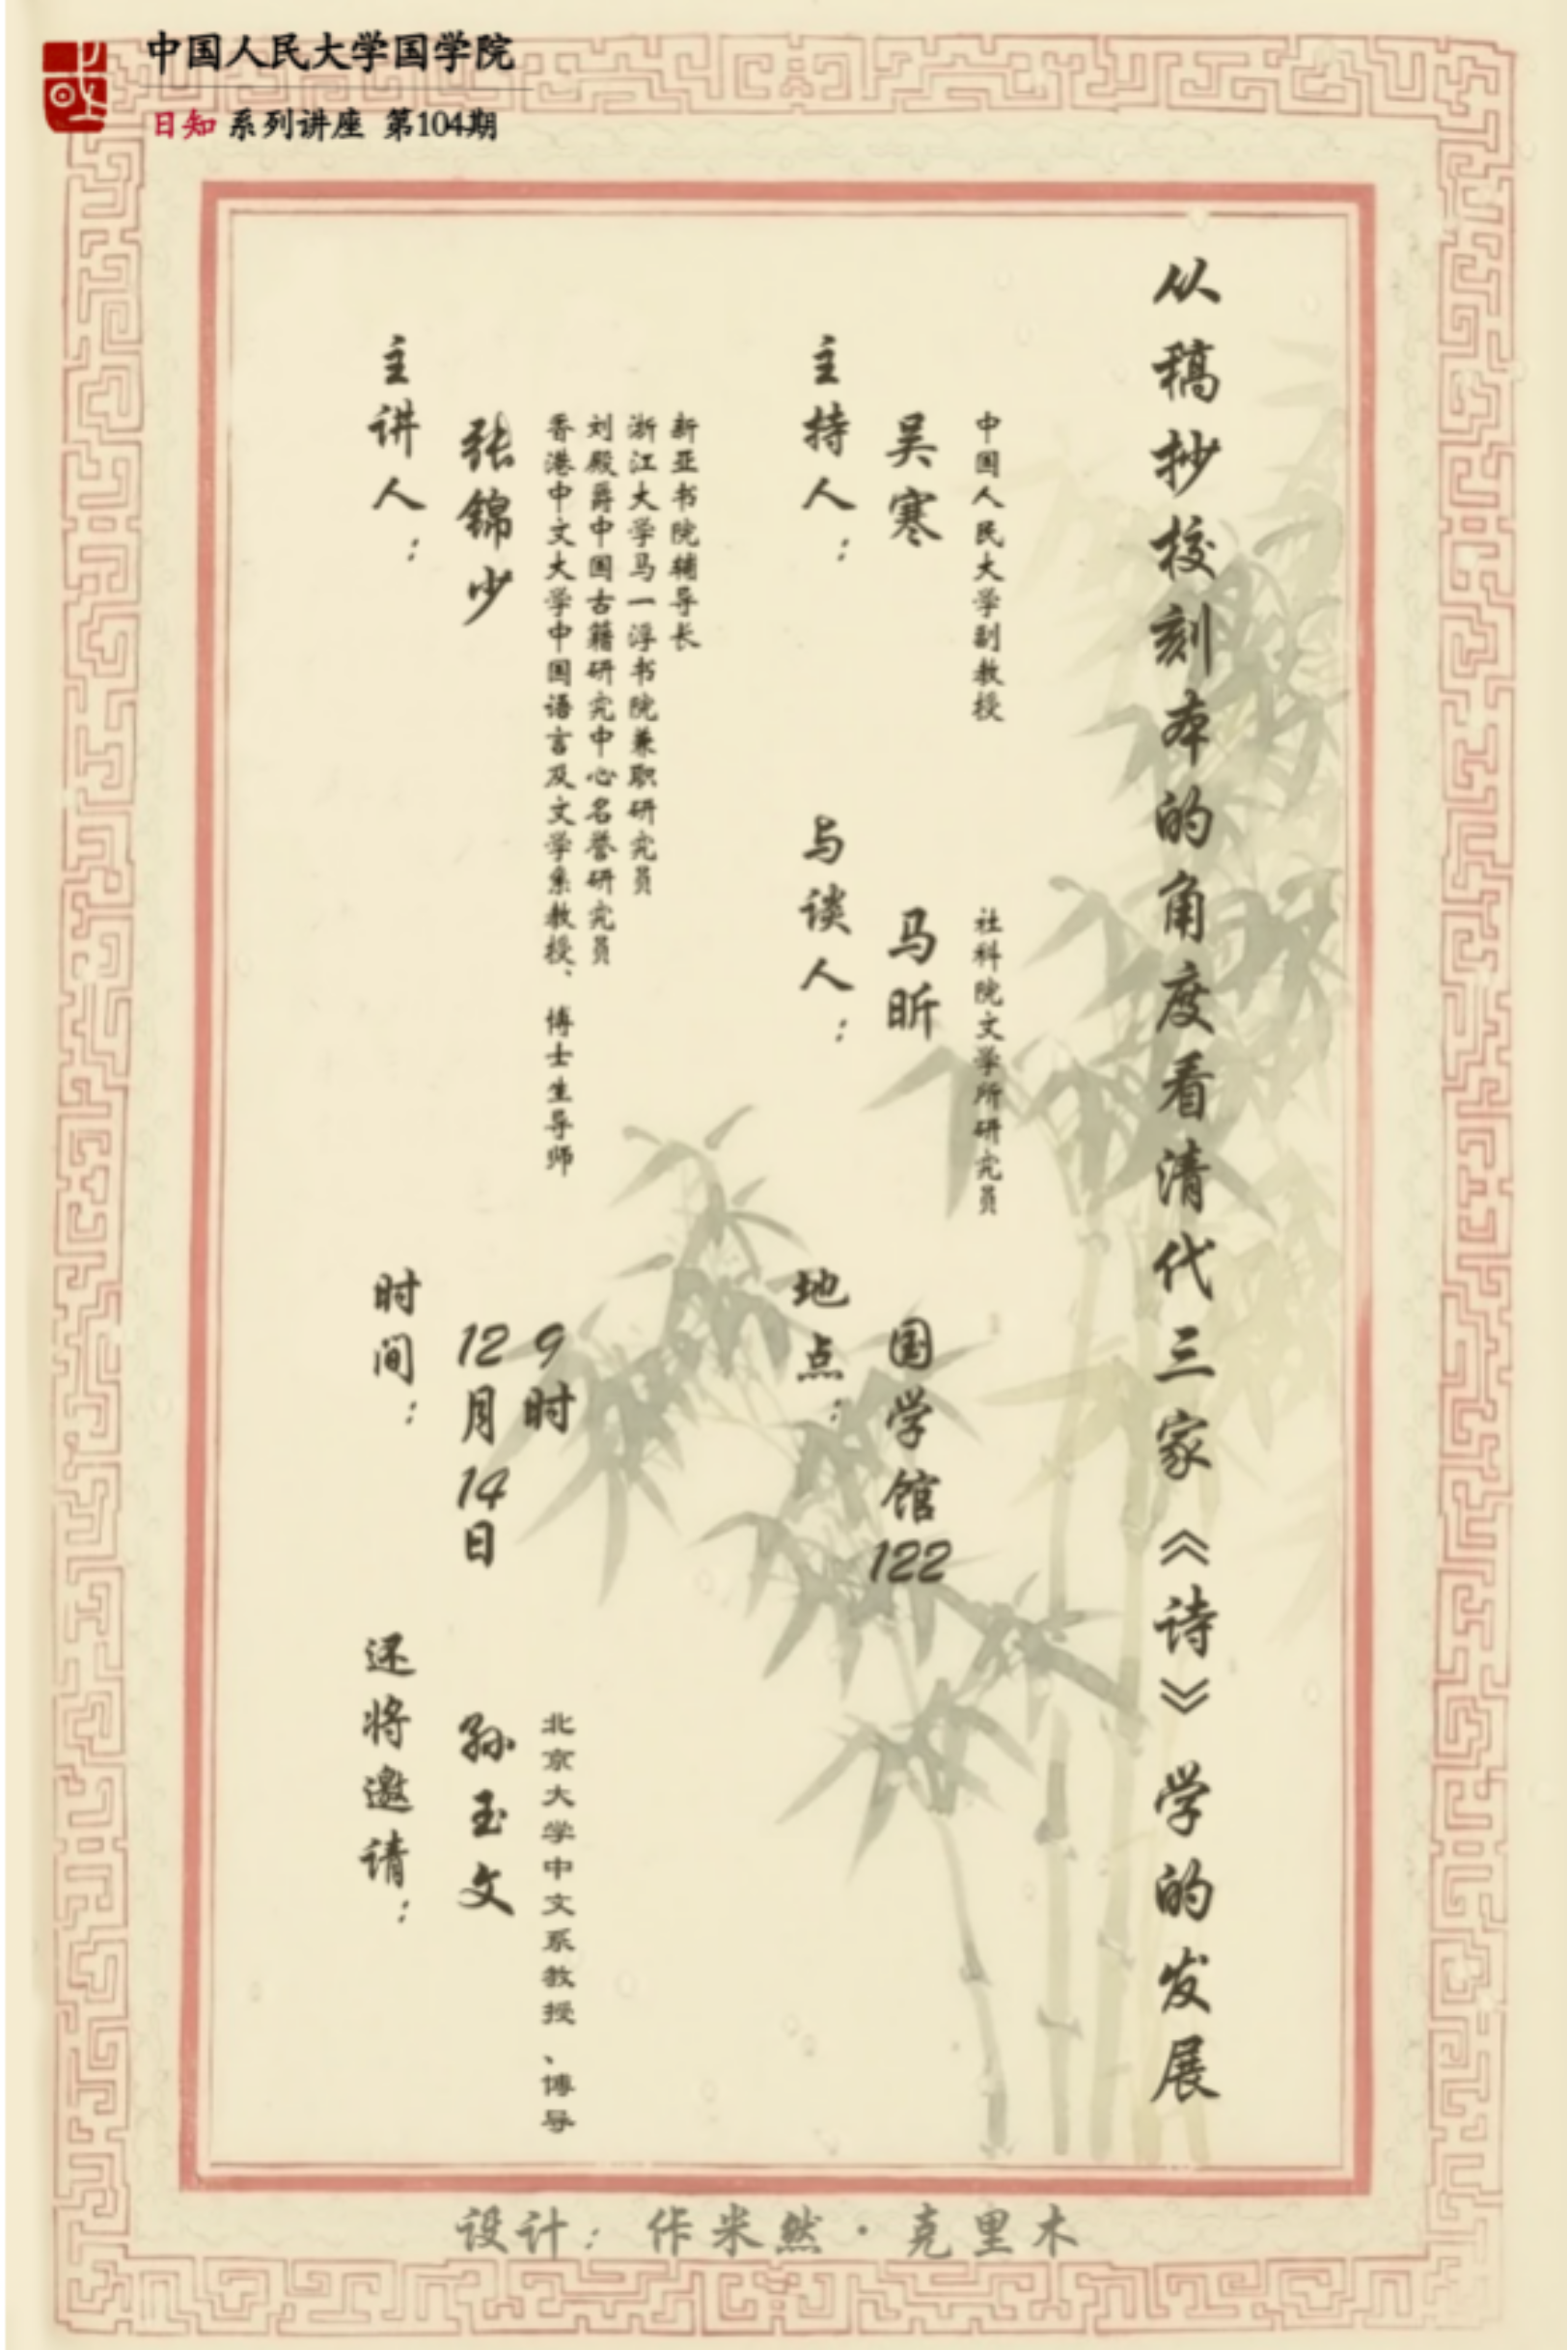 中国人民大学国学院
日知 系列讲座 第104期
从稿抄校刻本的角度看清代三家《诗》学的发展
主持人：
吴寒
中国人民大学副教授
与谈人：
马昕
社科院文学所研究员
地点：
国学馆122
主讲人：
张锦少
香港中文大学中国语言及文学系教授、博士生导师
刘殿爵中国古籍研究中心名誉研究员
浙江大学马一浮书院兼职研究员
新亚书院辅导长
时间：
12月14日
9时
还将邀请：
孙玉文
北京大学中文系教授、博导
设计：作米然·克里木